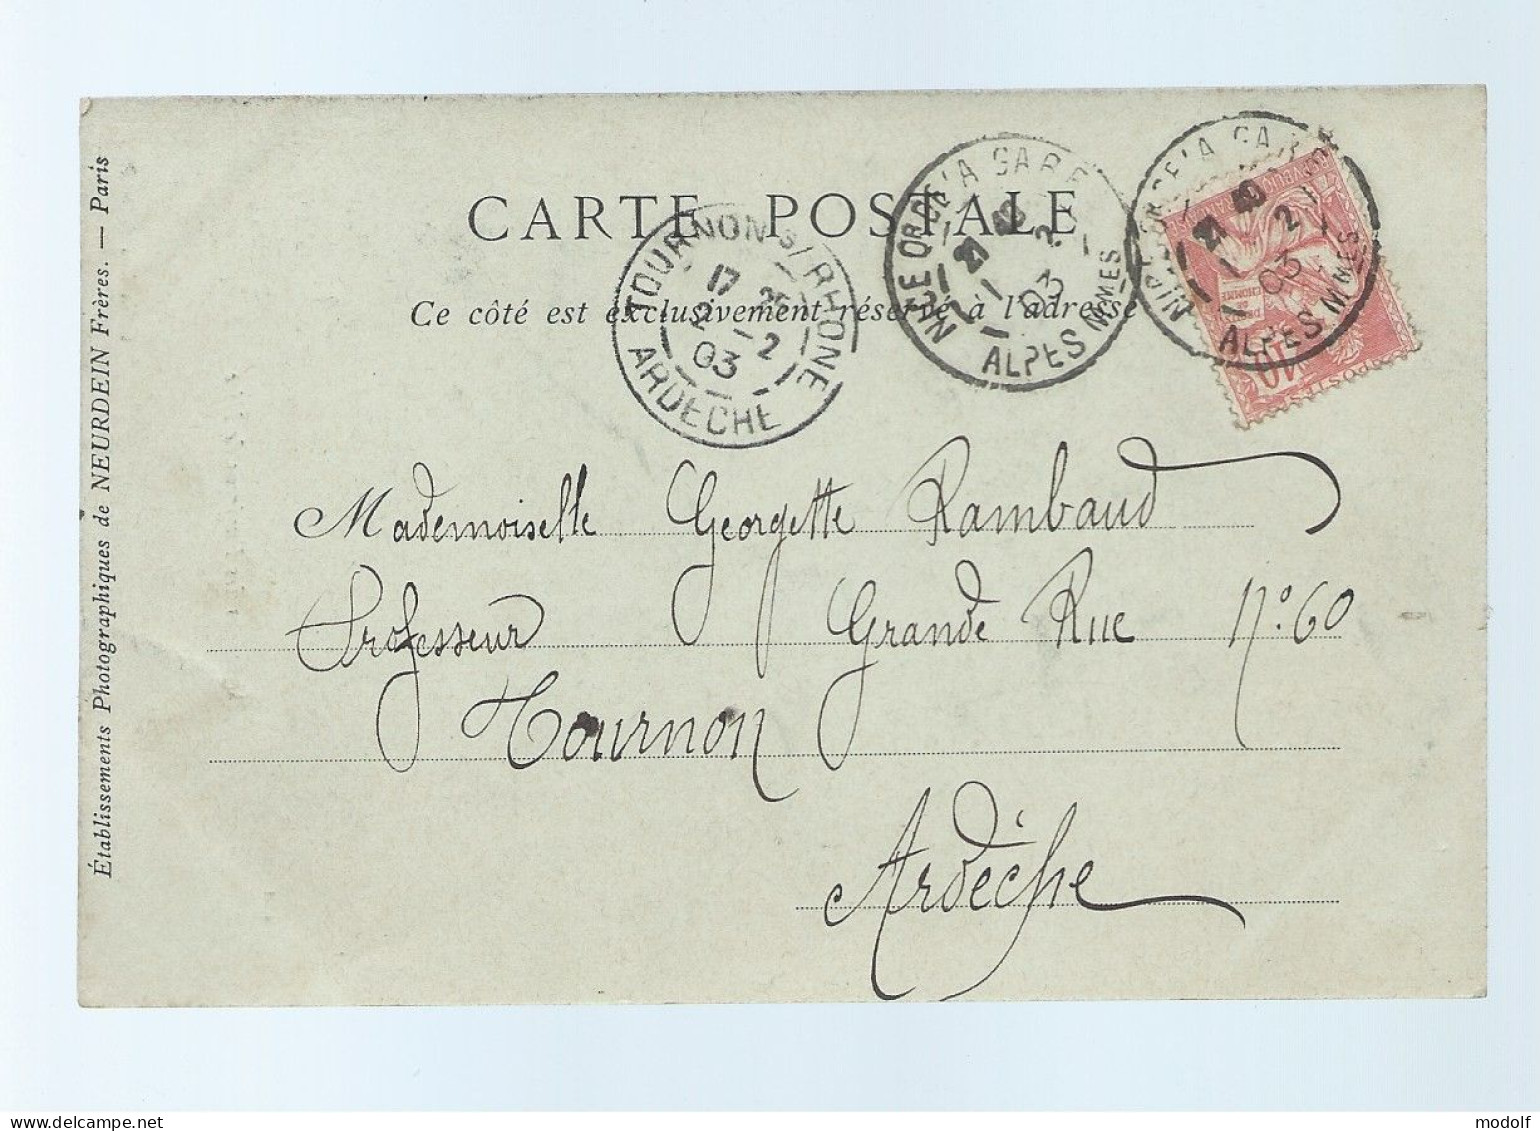 CARTE POSTALE
Ce côté est exclusivement réservé à l'adresse
TOURNON S/ RHONE
17
2 - 2
03
ARDECHE
A GARE
2
03
ALPES MMES
A GARE
2
03
ALPES MMES
10
POSTES
Mademoiselle Georgette Rambaud
Professeur Grande Rue No. 60
Tournon
Ardèche
Établissements Photographiques de NEURDEIN Frères. — Paris
delcampe.net
modolf